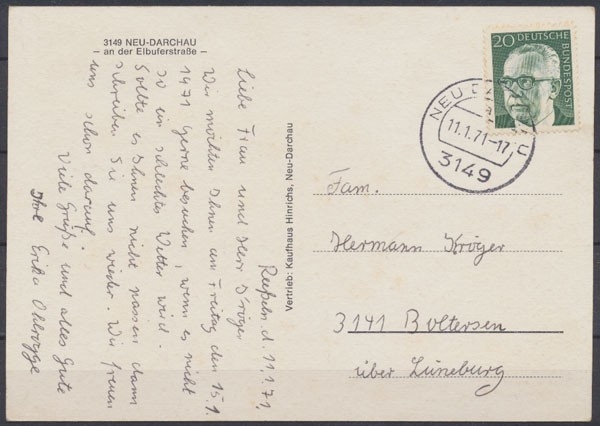 3149 NEU-DARCHAU
– an der Elbuferstraße –
11.1.71
Liebe Frau und Herr Kröger
Wir möchten Ihnen am Freitag den 15.1.
1971 gerne besuchen, wenn es nicht
so ein schlechtes Wetter wird.
Sollte es Ihnen nicht passen dann
schreiben Sie uns wieder. Wir freuen
uns schon darauf.
Viele Grüße und alles Gute
Ihre Erika
Vertrieb: Kaufhaus Hinrichs, Neu-Darchau
20 DEUTSCHE BUNDESPOST
NEU D U
11.1.71-17
3149
Fam.
Hermann Kröger
3141 Boltersen
über Lüneburg